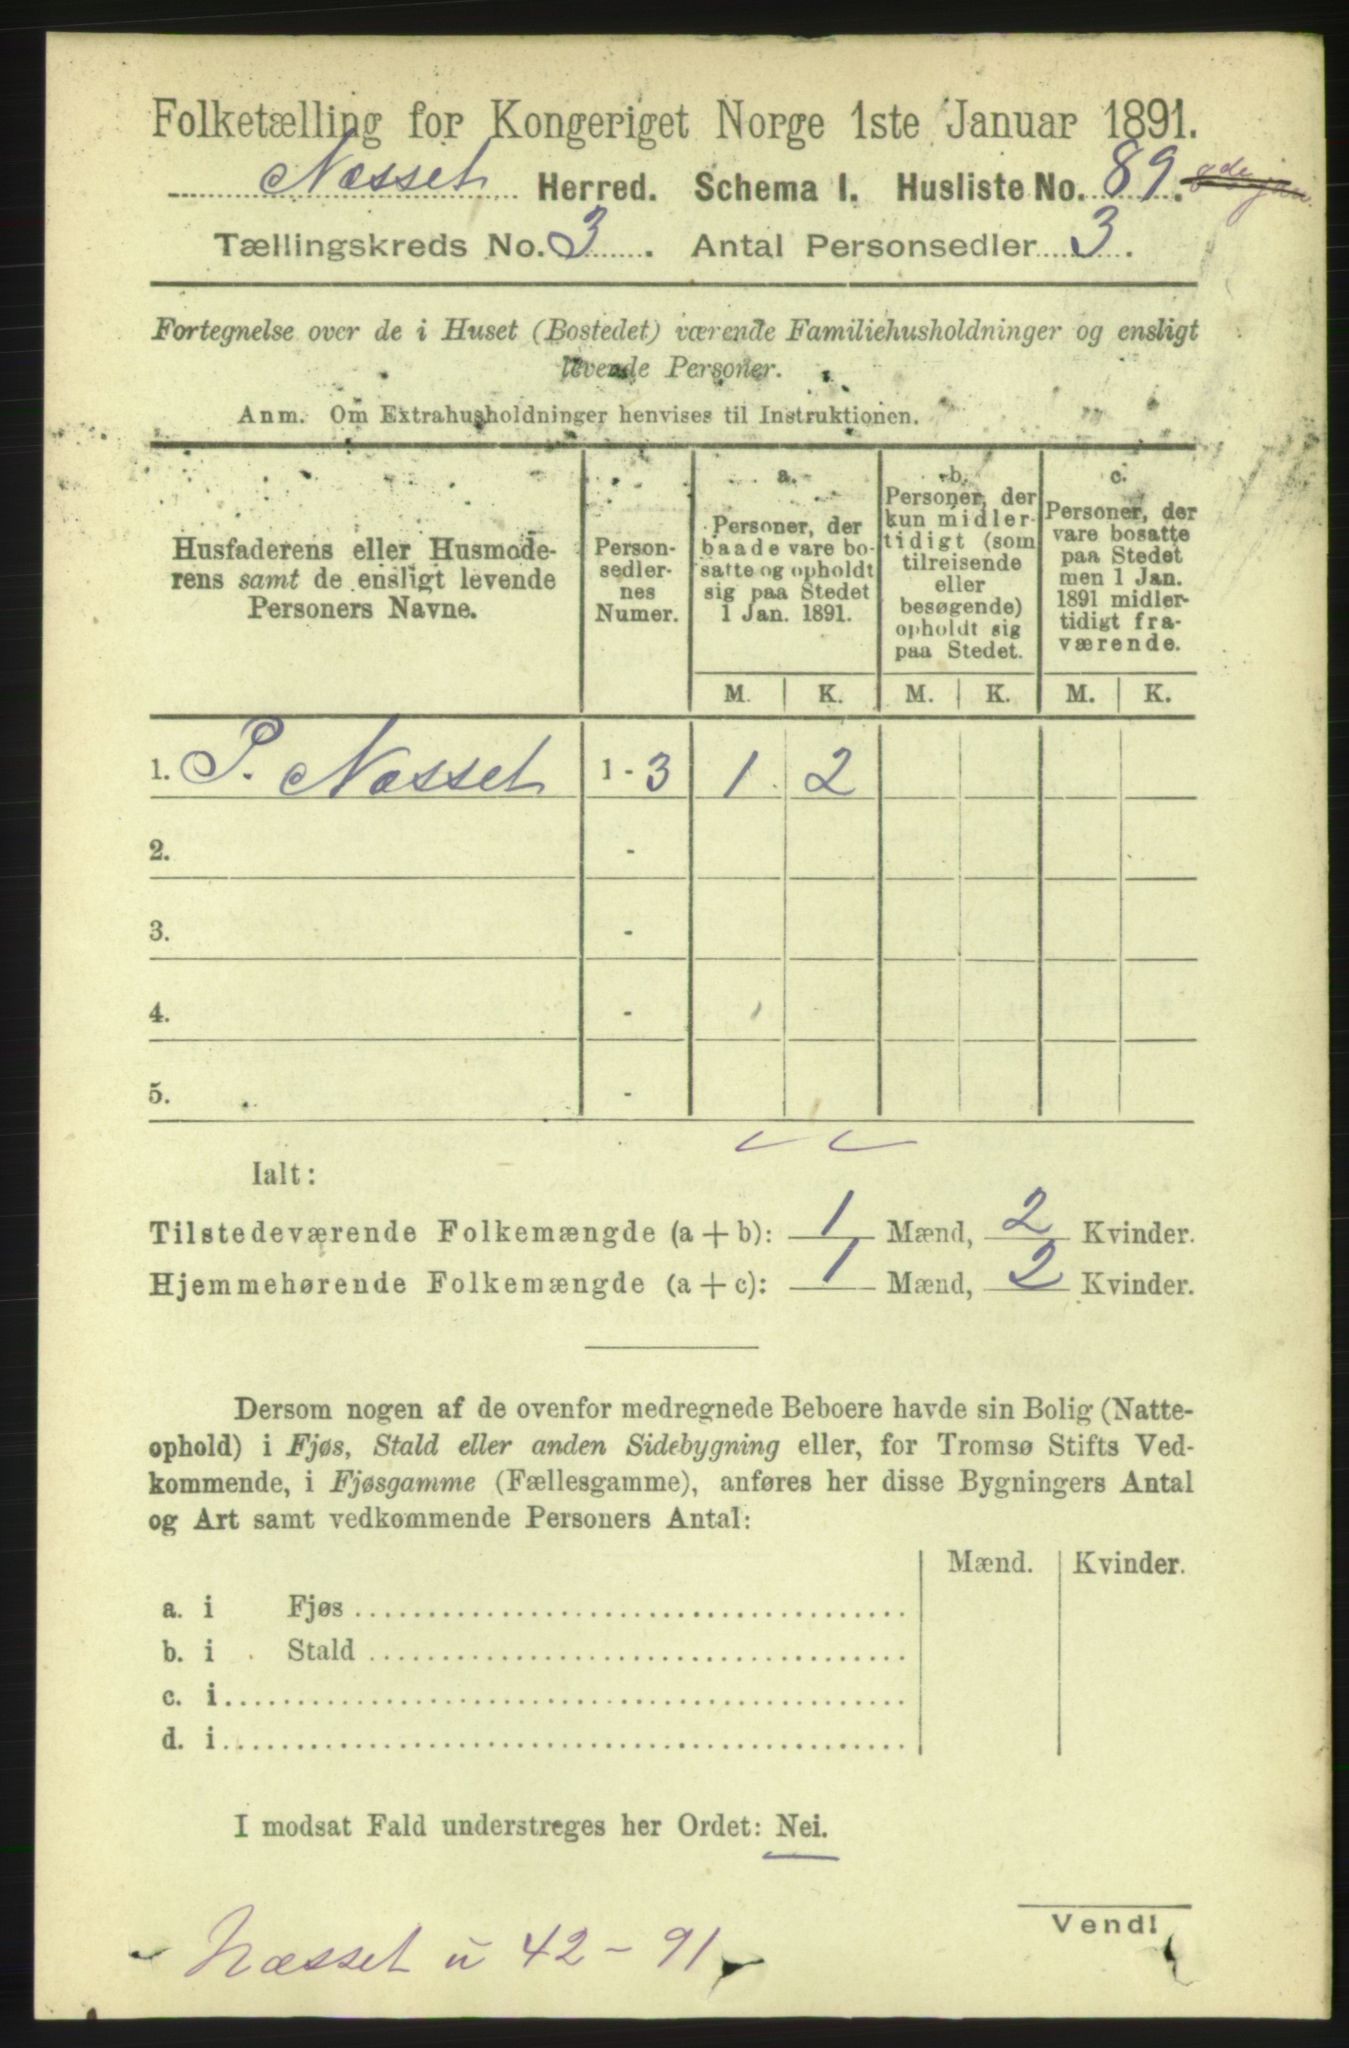 Folketælling for Kongeriget Norge 1ste Januar 1891.
Næsset Herred. Schema I. Husliste No. 89.
Tællingskreds No. 3. Antal Personsedler 3.
Fortegnelse over de i Huset (Bostedet) værende Familiehusholdninger og ensligt
levende Personer.
Anm. Om Extrahusholdninger henvises til Instruktionen.
Husfaderens eller Husmode-
rens samt de ensligt levende
Personers Navne.
Person-
sedler-
nes
Numer.
a.
Personer, der
baade vare bo-
satte og opholdt
sig paa Stedet
1 Jan. 1891.
b.
Personer, der
kun midler-
tidigt (som
tilreisende
eller
besøgende)
opholdt sig
paa Stedet.
c.
Personer, der
vare bosatte
paa Stedet
men 1 Jan.
1891 midler-
tidigt fra-
værende.
M. K. M. K. M. K.
1. P. Næsset 1 - 3 1 2
2. -
3. -
4. -
5. -
Ialt:
Tilstedeværende Folkemængde (a + b): 1 Mænd, 2 Kvinder.
Hjemmehørende Folkemængde (a + c): 1 Mænd, 2 Kvinder.
Dersom nogen af de ovenfor medregnede Beboere havde sin Bolig (Natte-
ophold) i Fjøs, Stald eller anden Sidebygning eller, for Tromsø Stifts Ved-
kommende, i Fjøsgamme (Fællesgamme), anføres her disse Bygningers Antal
og Art samt vedkommende Personers Antal:
Mænd. Kvinder.
a. i Fjøs
b. i Stald
c. i
d. i
I modsat Fald understreges her Ordet: Nei.
Vend!
Næsset u 42 - 91